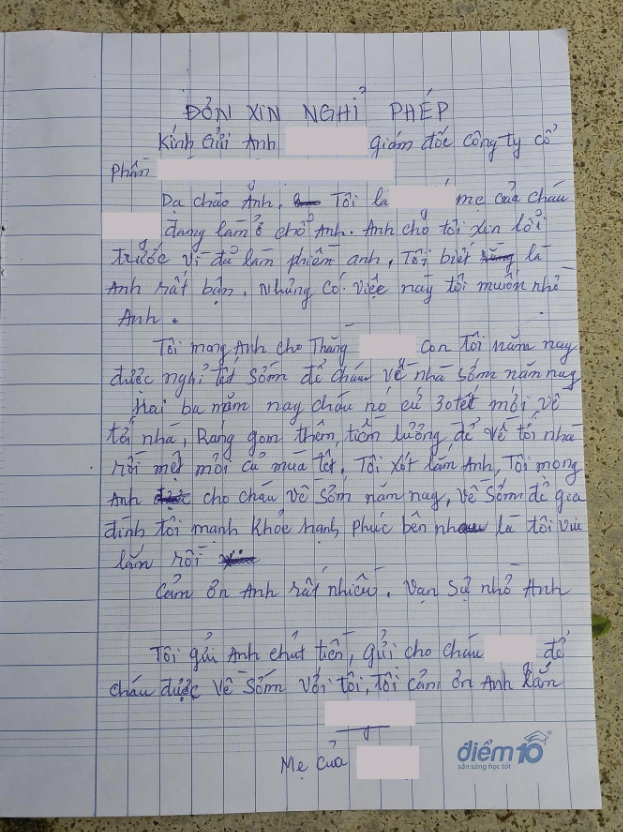 ĐƠN XIN NGHỈ PHÉP
Kính Gửi Anh giám đốc công ty cổ
phần
Dạ chào Anh, Tôi là mẹ của cháu
đang làm ở chổ Anh. Anh cho tôi xin lỗi
trước vì đã làm phiền anh, Tôi biết là
Anh rất bận, Nhưng có việc này tôi muốn nhờ
Anh.
Tôi mong Anh cho Thằng con tôi năm nay
được nghỉ tết sớm để cháu về nhà sớm năm nay
Hai ba năm nay cháu nó cứ 30 tết mới về
tới nhà, Ráng gom thêm tiền lương để về tới nhà
rồi mệt mỏi cả mùa tết. Tôi xót lắm Anh, Tôi mong
Anh cho cháu về sớm năm nay, về sớm để gia
đình tôi mạnh khỏe hạnh phúc bên nhau là tôi vui
lắm rồi
Cảm ơn Anh rất nhiều. Vạn sự nhờ Anh
Tôi gửi Anh chút tiền, gửi cho cháu để
cháu được về sớm với tôi, Tôi cảm ơn Anh lắm
Mẹ của
điểm 10
sẵn sàng học tốt